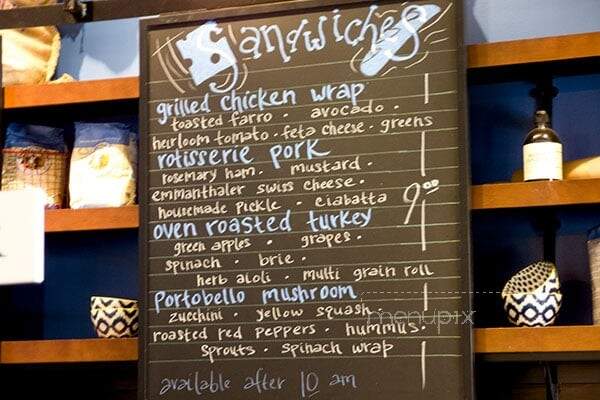 Sandwiches
grilled chicken wrap
toasted farro · avocado ·
heirloom tomato · feta cheese · greens
rotisserie pork
rosemary ham · mustard ·
emmanthaler swiss cheese ·
housemade pickle · ciabatta
9.00
oven roasted turkey
green apples · grapes ·
spinach · brie ·
herb aioli · multi grain roll
portobello mushroom
zucchini · yellow squash
menupix
roasted red peppers · hummus ·
sprouts · spinach wrap
available after 10 am